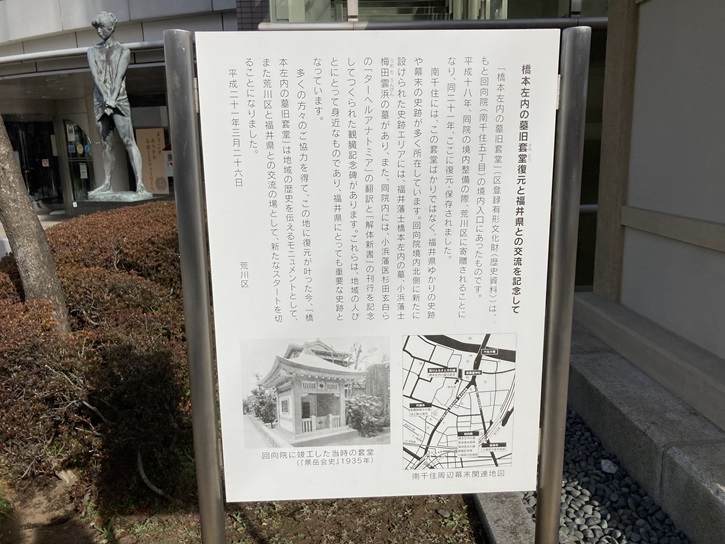 橋本左内の墓旧套堂復元と福井県との交流を記念して
「橋本左内の墓旧套堂」（区登録有形文化財（歴史資料））は、
もと回向院（南千住五丁目）の境内入口にあったものです。
平成十八年、同院の境内整備の際、荒川区に寄贈されることに
なり、同二十一年、ここに復元・保存されました。
南千住には、この套堂ばかりではなく、福井県ゆかりの史跡
や幕末の史跡が多く所在しています。回向院境内北側に新たに
設けられた史跡エリアには、福井藩士橋本左内の墓、小浜藩士
梅田雲浜の墓があり、また、同院内には、小浜藩医杉田玄白ら
の「ターヘルアナトミア」の翻訳と「解体新書」の刊行を記念
してつくられた観臓記念碑があります。これらは、地域の人び
とにとって身近なものであり、福井県にとっても重要な史跡と
なっています。
多くの方々のご協力を得て、この地に復元が叶った今、「橋
本左内の墓旧套堂」は地域の歴史を伝えるモニュメントとして、
また荒川区と福井県との交流の場として、新たなスタートを切
ることになりました。
平成二十一年三月二十六日
荒川区
回向院に竣工した当時の套堂
（『景岳会史』1935年）
南千住周辺幕末関連地図